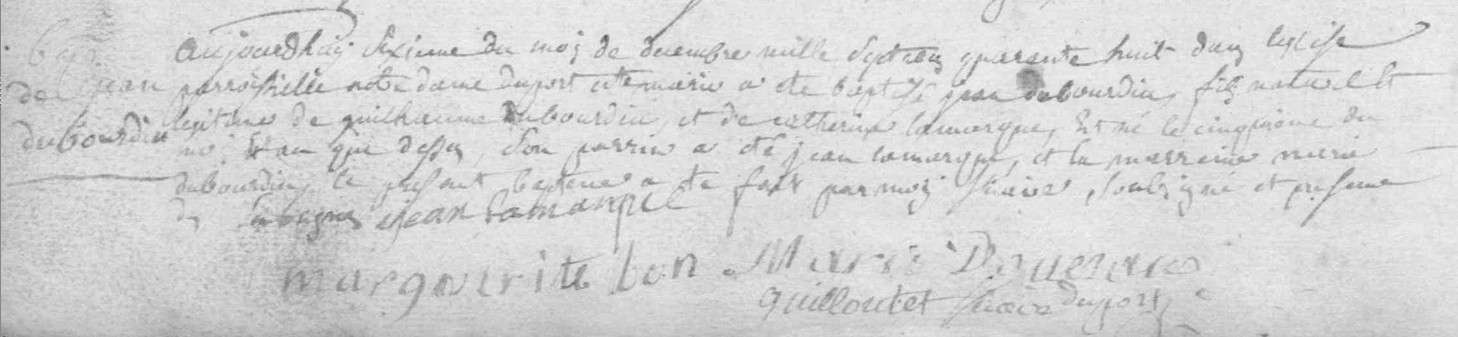 Bap
de jean
dubourdieu
aujourdhuy sixieme du moy de decembre mille sept cens quarante huit dans leglise
parroissielle notre dame duport ste marie a ete baptisé jean dubourdieu, fils naturel et
legitime de guilhaume dubourdieu, et de catherine lamarque, Est né le cinquieme du
moi, Et an que dessus, Son parrin a eté jean lamarque, et la marreine marie
dubourdieu, le present bapteme a ete fait par moy vicaire, soubsigné et presence
de jean lamarque
marguerite bon Marie
guilloutet vicaire duport